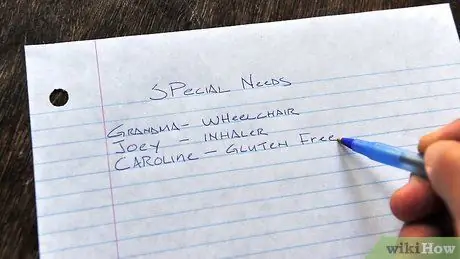 SPecial Needs
GRANDMA- WHeelCHAIR
Joey - INHALER
CAROLINE - GLUTEN FRee
wikiHow